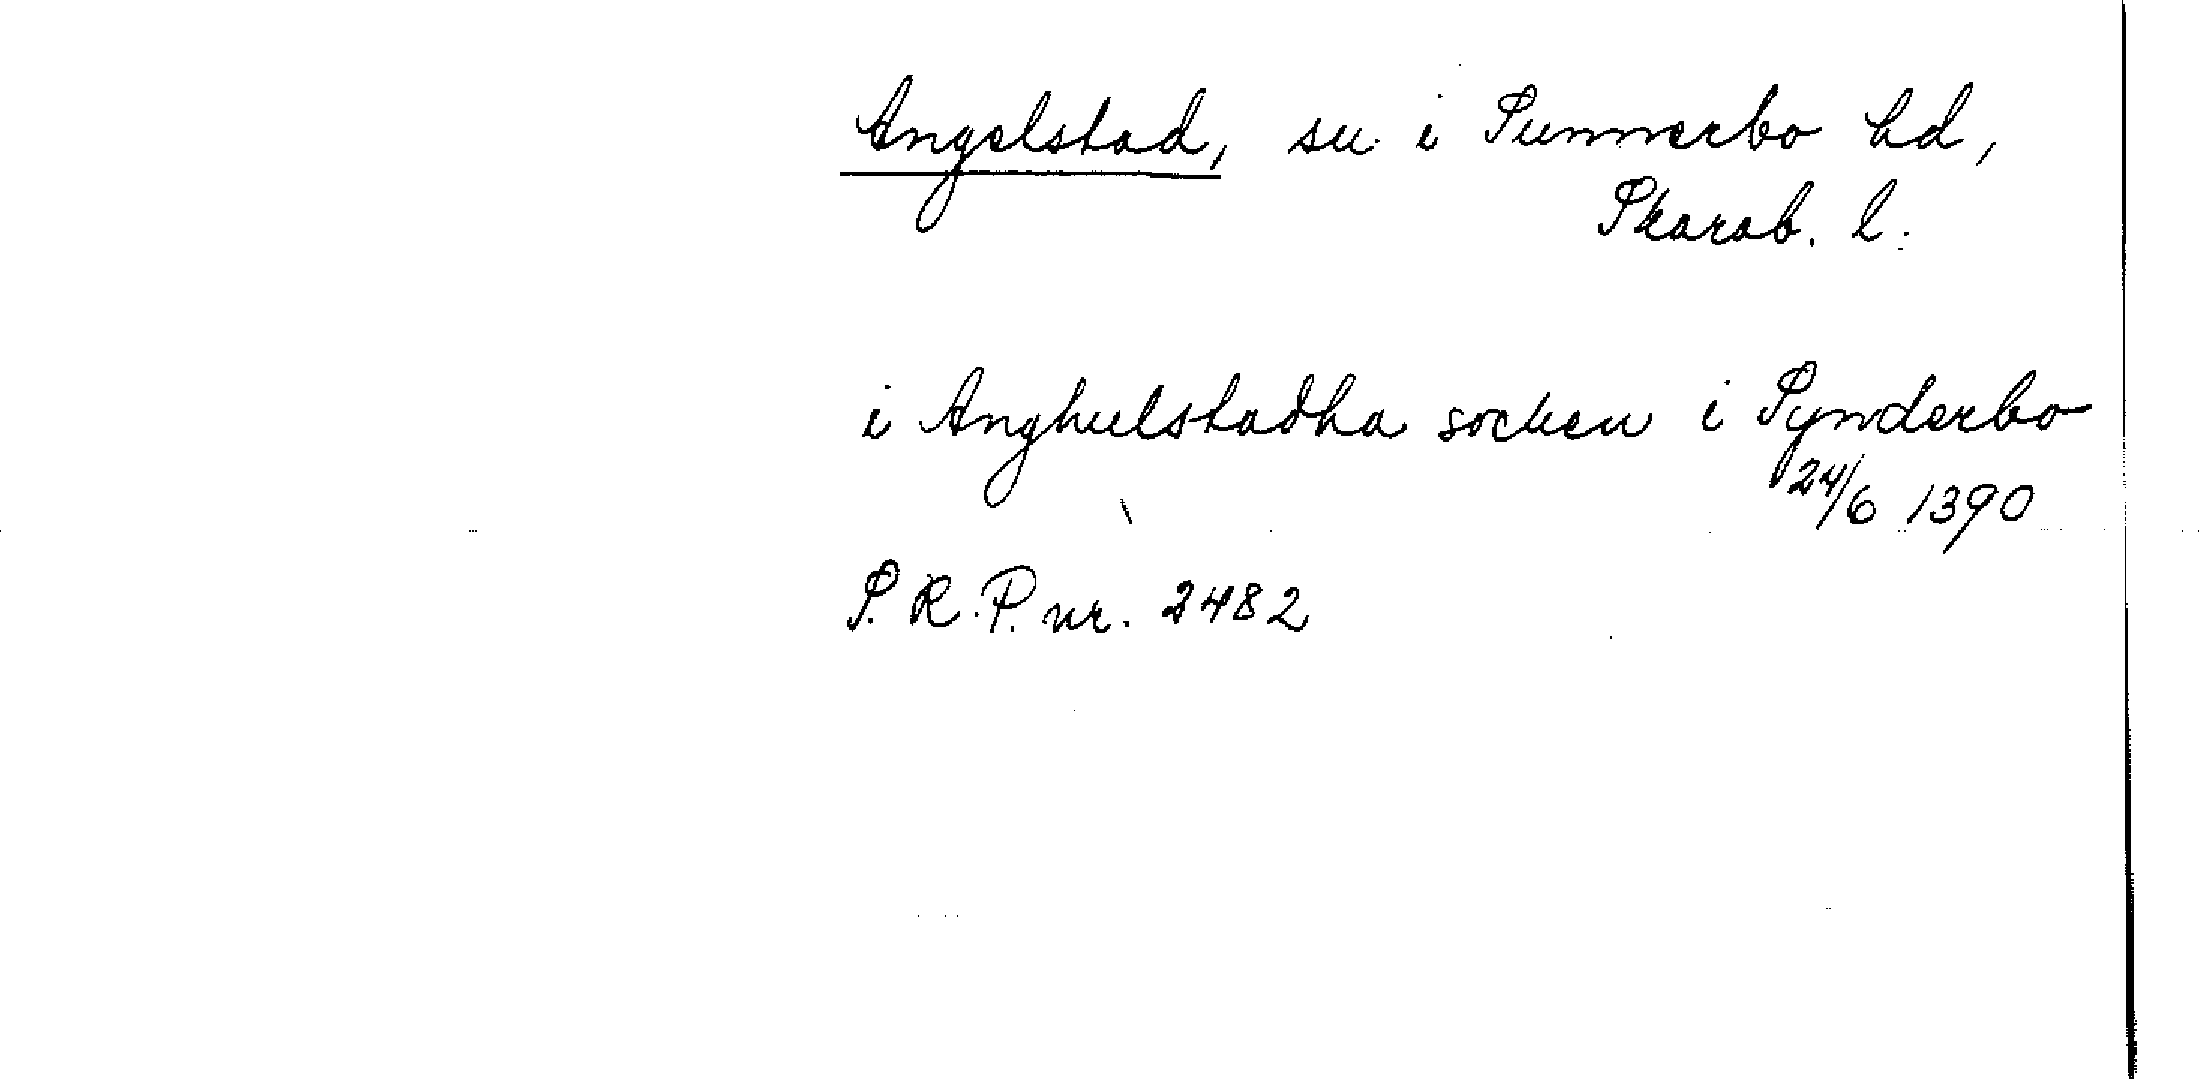 Angelstad, sn i Sunnerbo hd,
Skarab. l.
i Anghulstadha socken i Synderbo
24/6 1390
S.R.P. nr. 2482